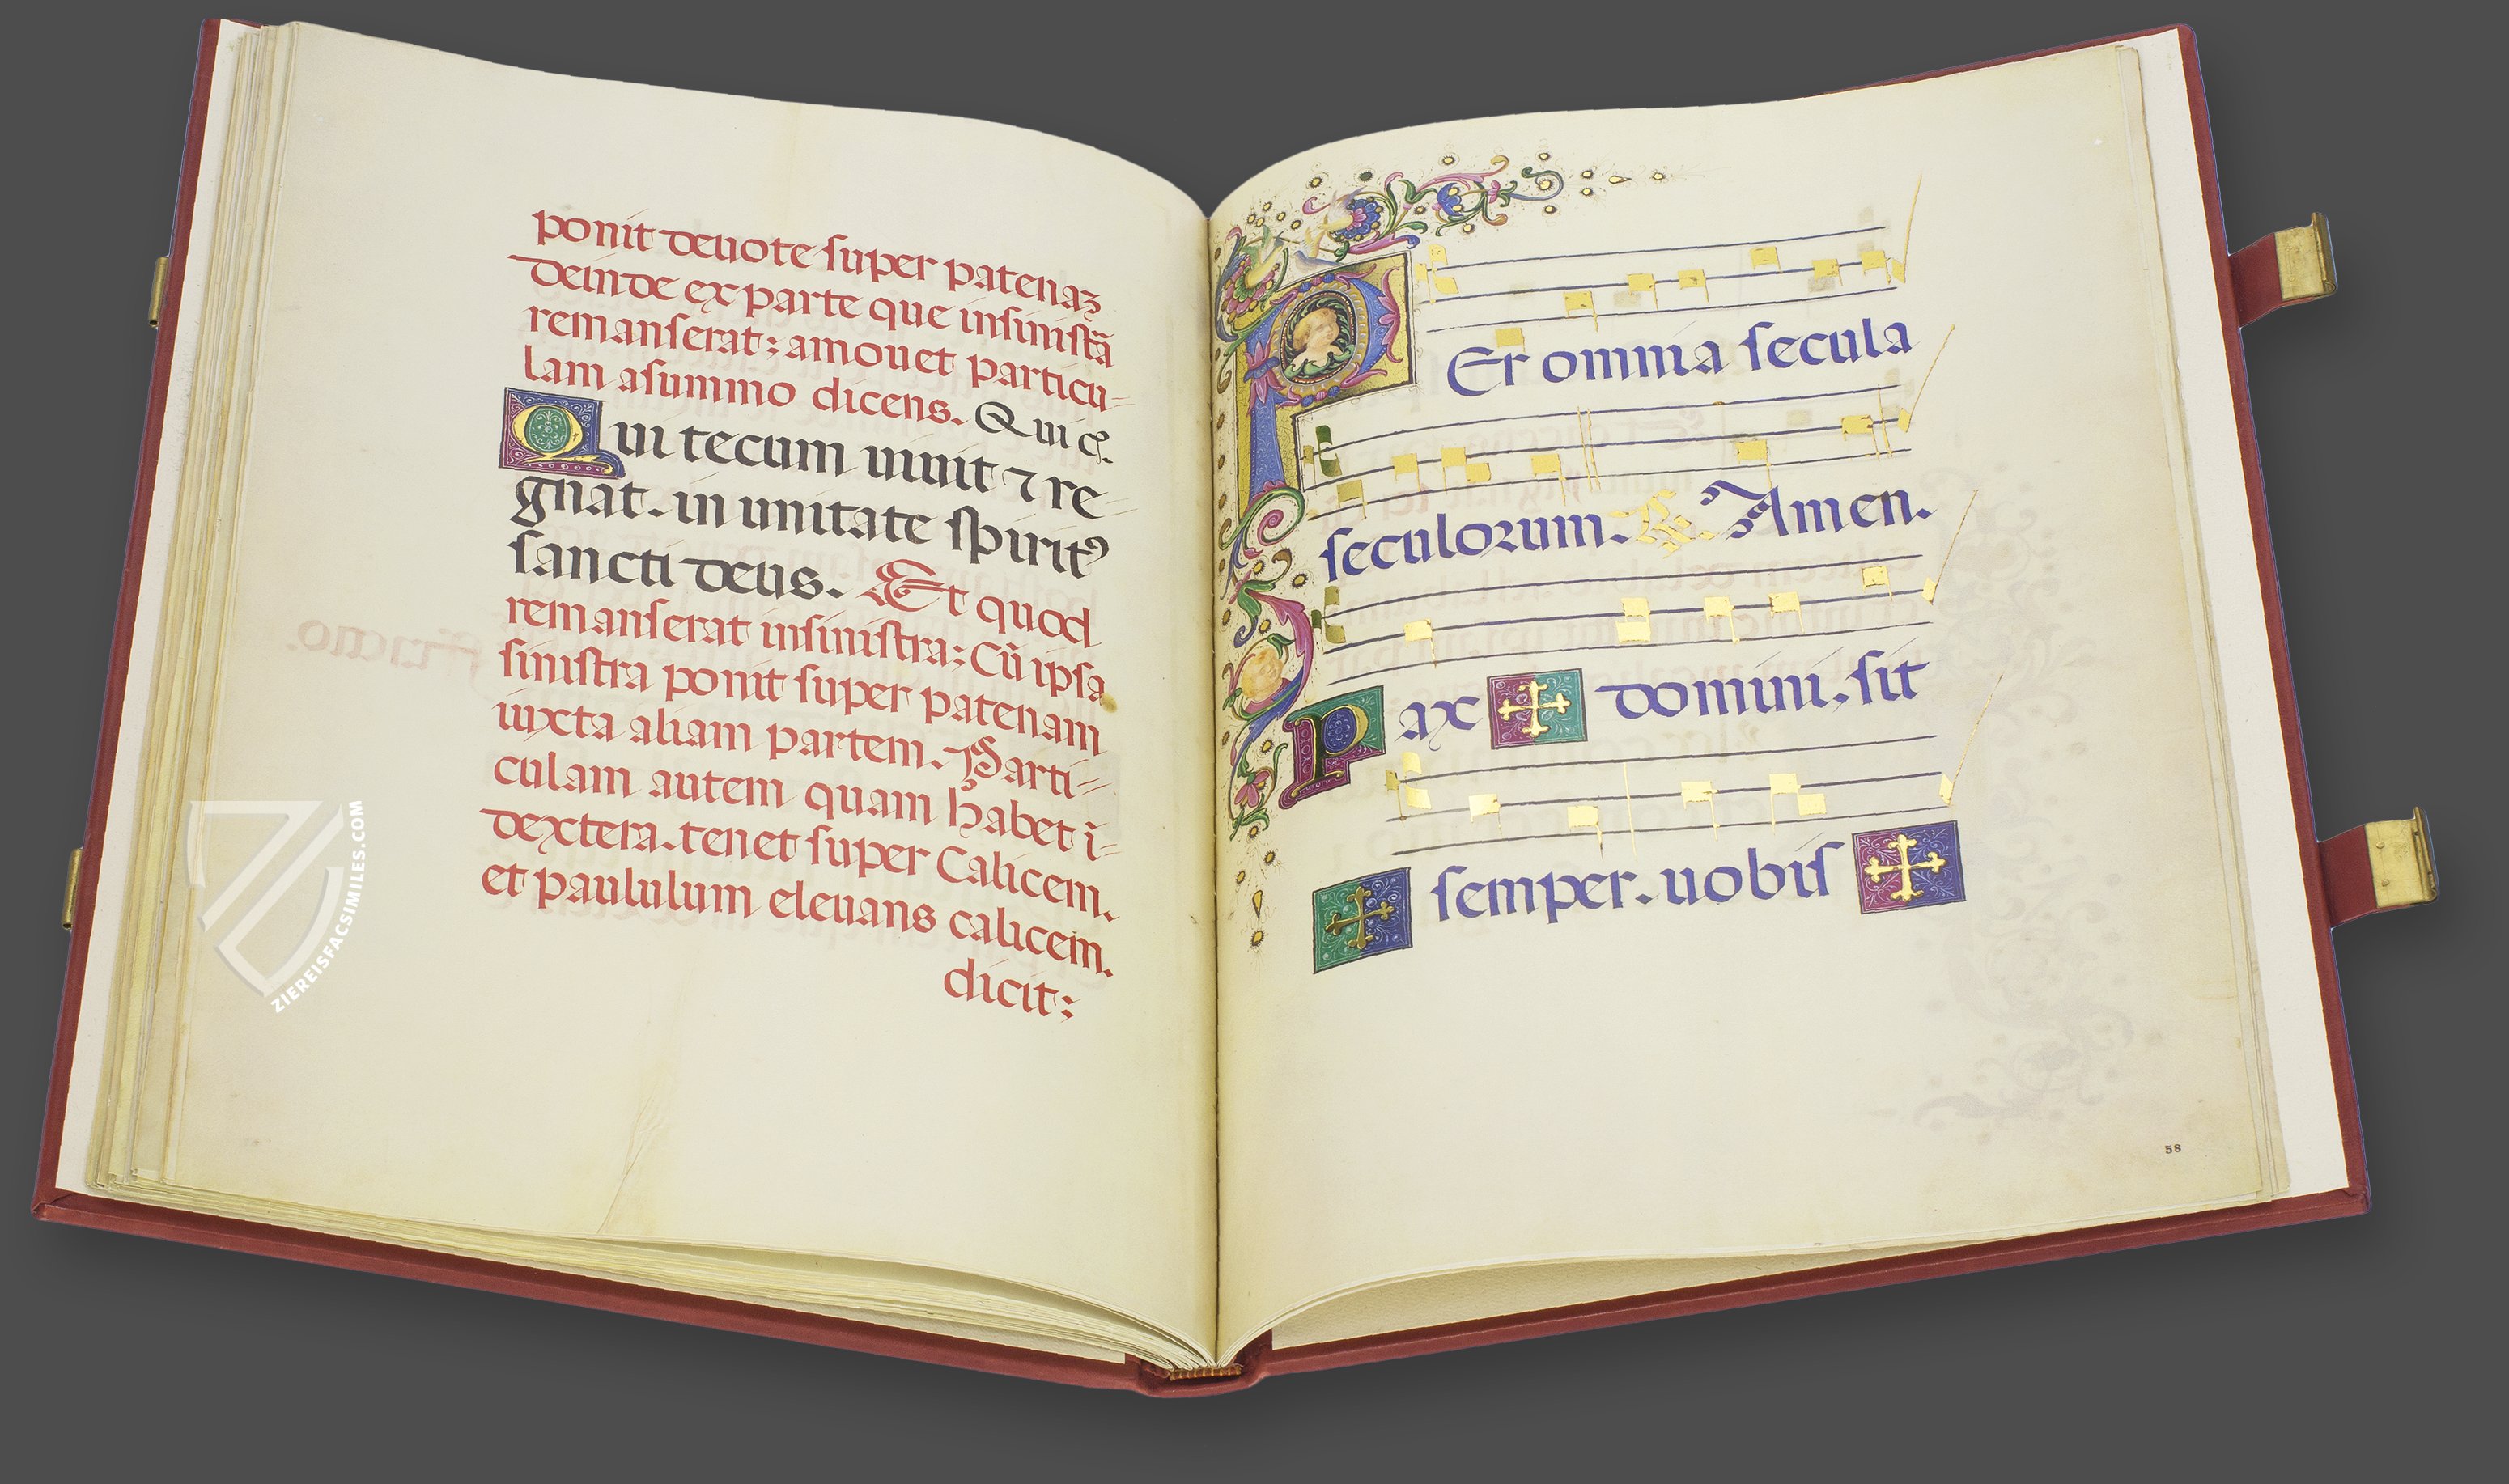 ponit deuote super patenaz
Deinde ex parte que insinistã
remanserat; amouet particu-
lam asummo dicens. Qui c̃.
Qui tecum uiuit ⁊ re
gnat. in unitate spiritꝰ
sancti deus. Et quod
remanserat insinistra: Cũ ipsa
sinistra ponit super patenam
iuxta aliam partem. Parti-
culam autem quam habet ĩ-
dextera. tenet super Calicem.
et paululum eleuans calicem.
dicit;
PEr omnia secula
seculorum. ℟. Amen.
Pax ✠ domini. sit
✠ semper. uobis ✠
58
ZIEREISFACSIMILES.COM